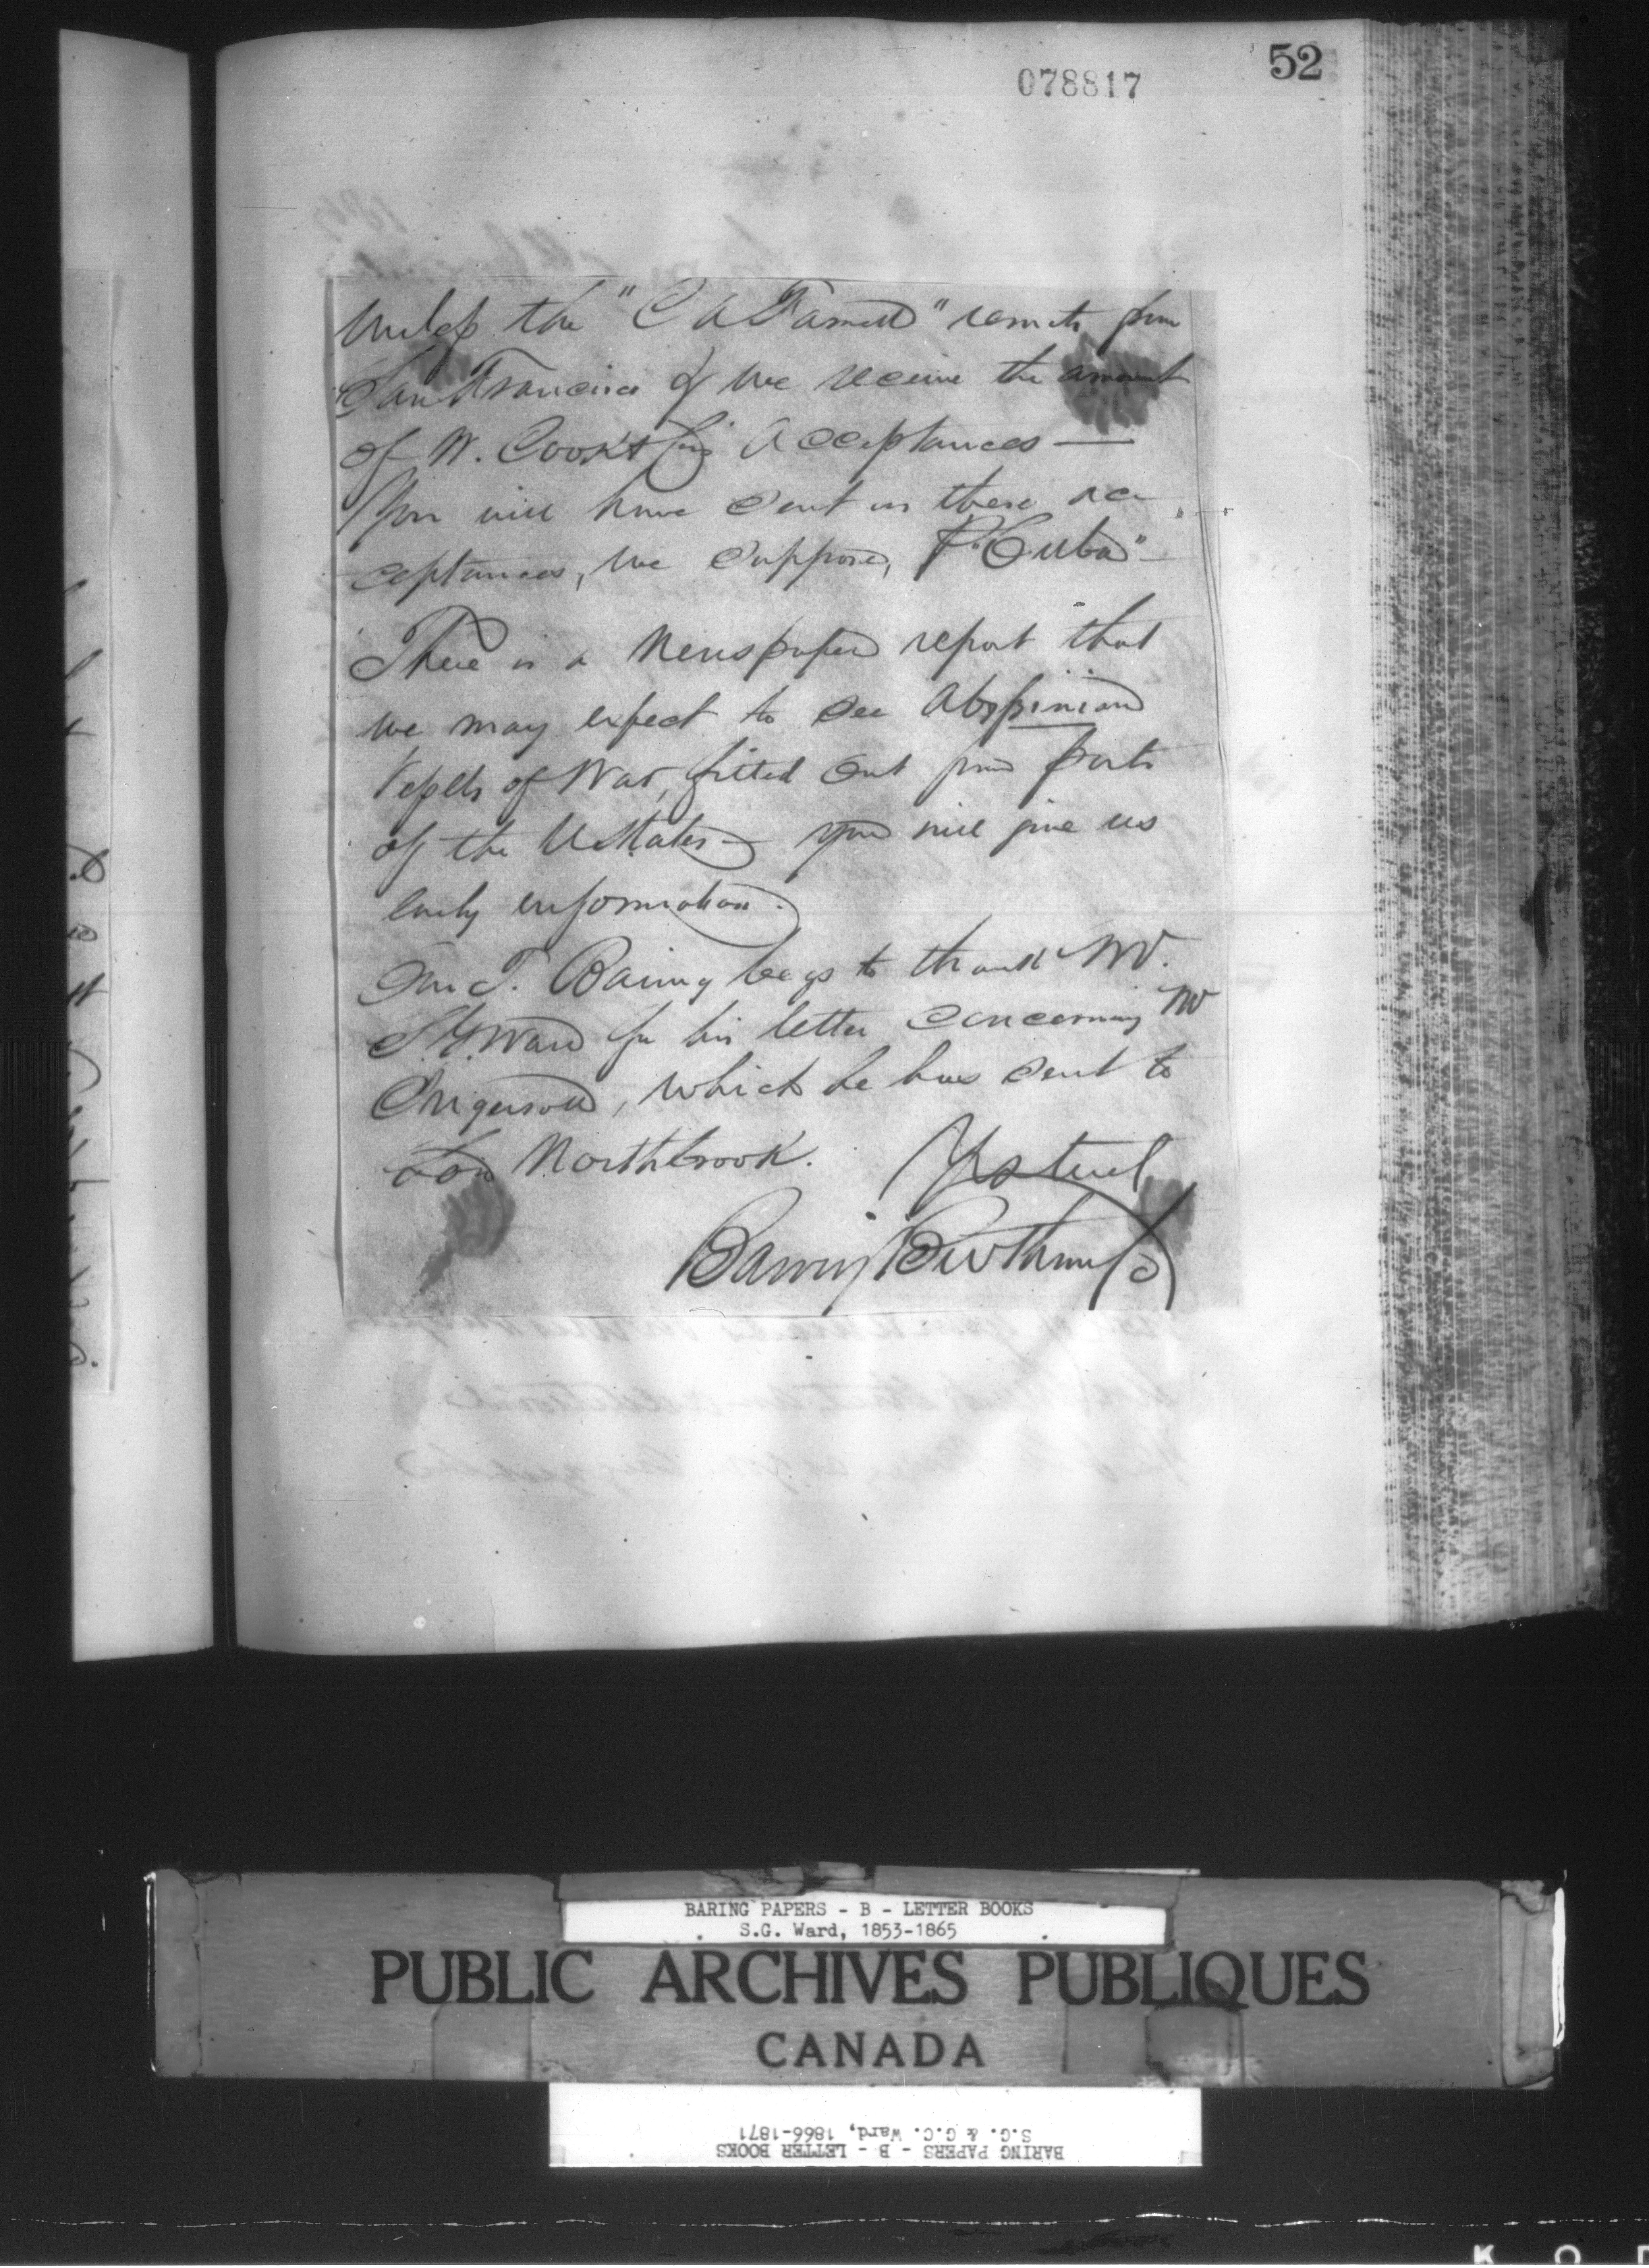 52
078817
Unless the "C A Farwell" remits from
San Francisco & we receive the amount
of W. Cook & Sons acceptances —
You will have sent us these ac
ceptances, we suppose, P "Cuba" —
There is a Newspaper report that
we may expect to see Abyssinian
Vessels of War, fitted out from Ports
of the UStates — you will give us
early information.
Our T. Baring begs to thank Mr.
S. G. Ward for his letter concerning Mr
Ingersoll, which he has sent to
Lord Northbrook. Yrs truly
Baring Brothers & Co
BARING PAPERS - B - LETTER BOOKS
S.G. Ward, 1853-1865
PUBLIC ARCHIVES PUBLIQUES
CANADA
BARING PAPERS - B - LETTER BOOKS
S.G. & G.C. Ward, 1866-1871
K O D